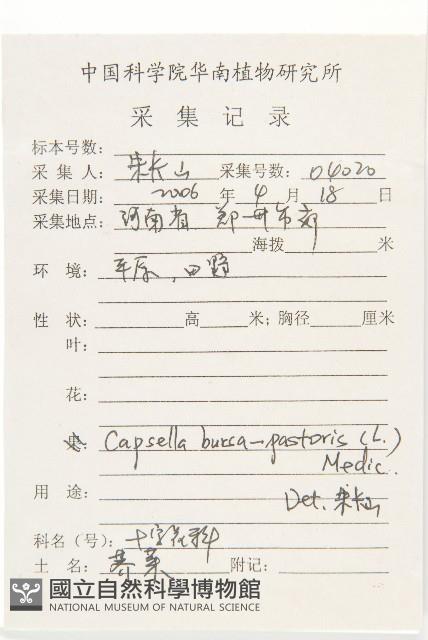 中国科学院华南植物研究所
采集记录
标本号数：
采集人： 朱长山 采集号数： 04020
采集日期： 2006 年 4 月 18 日
采集地点： 河南省 郑州市郊
海拨 米
环境： 平原，田野
性状： 高 米；胸径 厘米
叶：
花：
果： Capsella bursa-pastoris (L.)
Medic.
用途： Det. 朱长山
科名（号）： 十字花科
土名： 荠菜 附记：
國立自然科學博物館
NATIONAL MUSEUM OF NATURAL SCIENCE